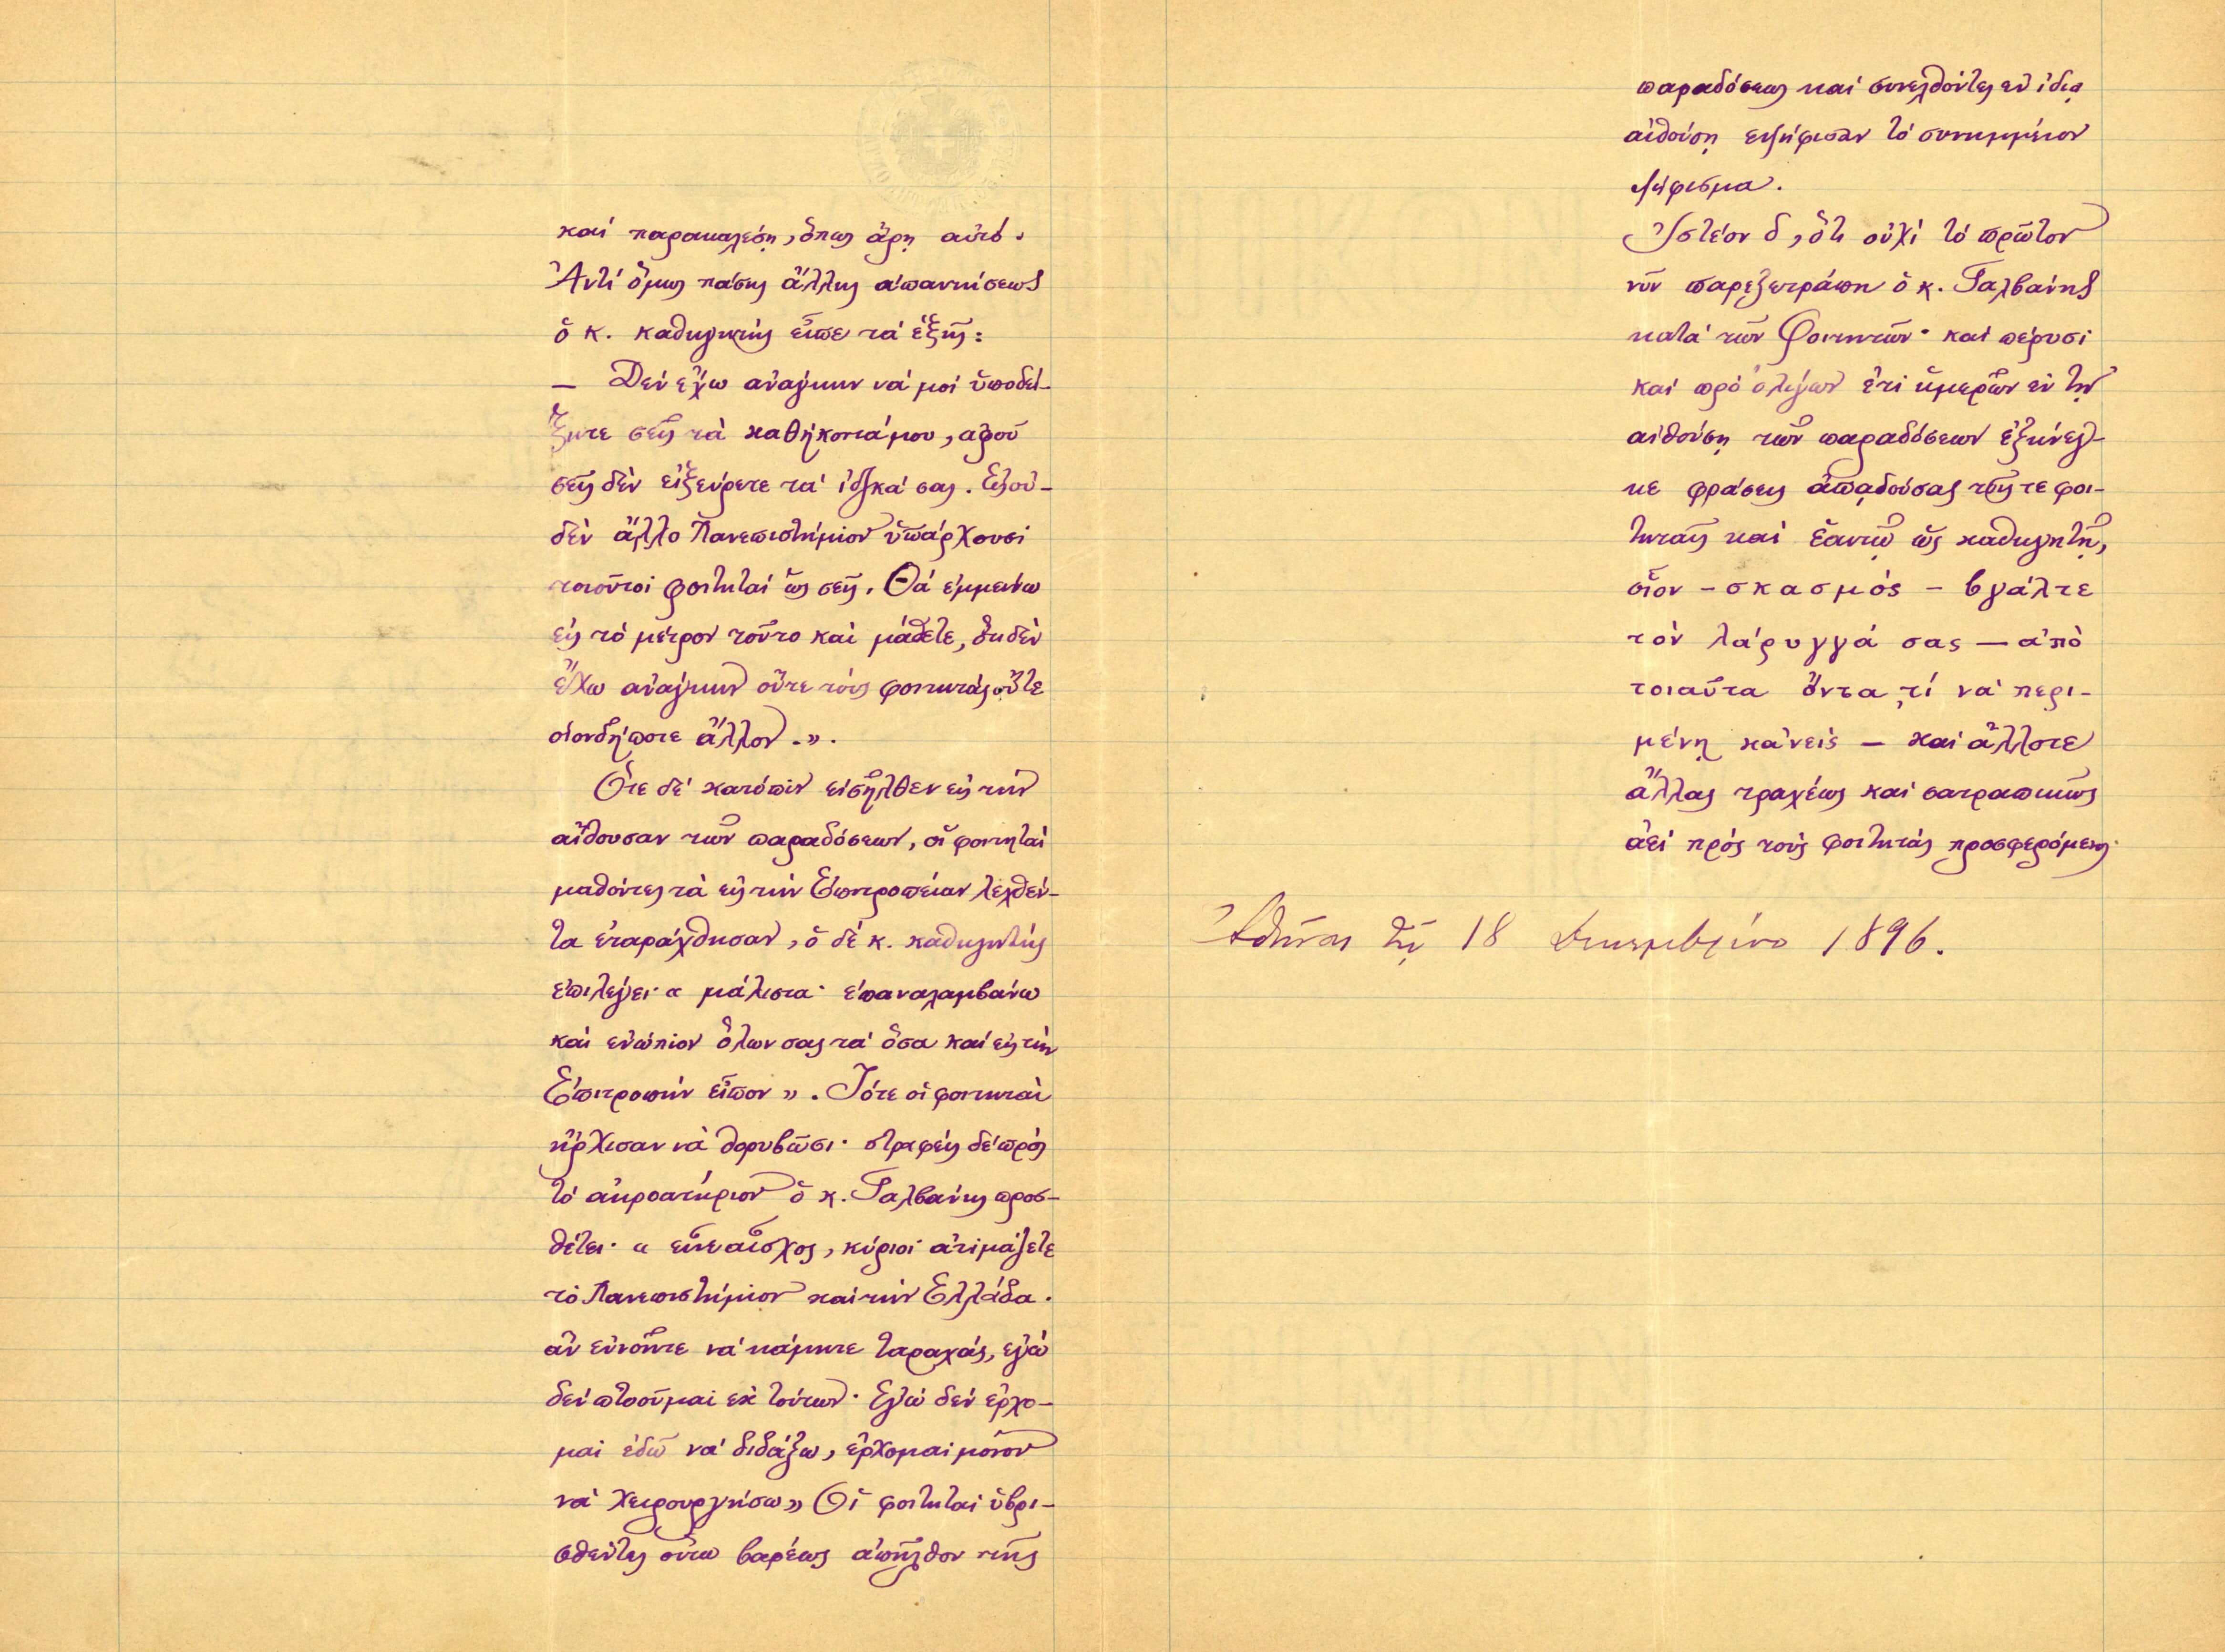 καὶ παρακαλέσῃ, ὅπως ἄρῃ αὐτό.
Ἀντὶ ὅμως πάσης ἄλλης ἀπαντήσεως
ὁ κ. καθηγητὴς εἶπε τὰ ἑξῆς:
— Δὲν ἔχω ἀνάγκην νά μοι ὑποδεί-
ξητε σεῖς τὰ καθήκοντά μου, ἀφοῦ
σεῖς δὲν εἰξεύρετε τὰ ἰδικά σας. Εἰς οὐ-
δὲν ἄλλο Πανεπιστήμιον ὑπάρχουσι
τοιοῦτοι φοιτηταὶ ὡς σεῖς. Θὰ ἐμμείνω
εἰς τὸ μέτρον τοῦτο καὶ μάθετε, ὅτι δὲν
ἔχω ἀνάγκην οὔτε τοὺς φοιτητάς οὔτε
οἱονδήποτε ἄλλον.».
Ὅτε δὲ κατόπιν εἰσῆλθεν εἰς τὴν
αἴθουσαν τῶν παραδόσεων, οἱ φοιτηταὶ
μαθόντες τὰ εἰς τὴν Ἐπιτροπείαν λεχθέν-
τα ἐταράχθησαν, ὁ δὲ κ. καθηγητὴς
ἐπιλέγει· « μάλιστα· ἐπαναλαμβάνω
καὶ ἐνώπιον ὅλων σας τὰ ὅσα καὶ εἰς τὴν
Ἐπιτροπὴν εἶπον ». Τότε οἱ φοιτηταὶ
ἤρχισαν νὰ θορυβῶσι· στραφεὶς δὲ πρὸς
τὸ ἀκροατήριον ὁ κ. Γαλβάνης προσ-
θέτει· « εἶνε αἶσχος, κύριοι· ἀτιμάζετε
τὸ Πανεπιστήμιον καὶ τὴν Ἑλλάδα.
ἂν ἐννοῆτε νὰ κάμητε ταραχάς, ἐγὼ
δὲν πτοοῦμαι ἐκ τούτων· Ἐγὼ δὲν ἔρχο-
μαι ἐδῶ νὰ διδάξω, ἔρχομαι μόνον
νὰ χειρουργήσω» Οἱ φοιτηταὶ ὑβρι-
σθέντες οὕτω βαρέως ἀπῆλθον τῆς
παραδόσεως καὶ συνελθόντες ἐν ἰδίᾳ
αἰθούσῃ ἐψήφισαν τὸ συνημμένον
ψήφισμα.
Ἰστέον δ, ὅτι οὐχὶ τὸ πρῶτον
νῦν παρεξετράπη ὁ κ. Γαλβάνης
κατὰ τῶν Φοιτητῶν· καὶ πέρυσι
καὶ πρὸ ὀλίγων ἔτι ἡμερῶν ἐν τῇ
αἰθούσῃ τῶν παραδόσεων ἐξήνεγ-
κε φράσεις ἀπᾳδούσας τοῖς τε φοι-
τηταῖς καὶ ἑαυτῷ ὡς καθηγητῇ,
οἷον – σκασμός – βγάλτε
τὸν λάρυγγά σας — ἀπὸ
τοιαῦτα ὄντα, τί νὰ περι-
μένῃ κανείς — καὶ ἄλλοτε
ἄλλας τραχέως καὶ σατραπικῶς
ἀεὶ πρὸς τοὺς φοιτητὰς προσφερόμενος·
Ἀθῆναι τῇ 18 Δεκεμβρίου 1896.